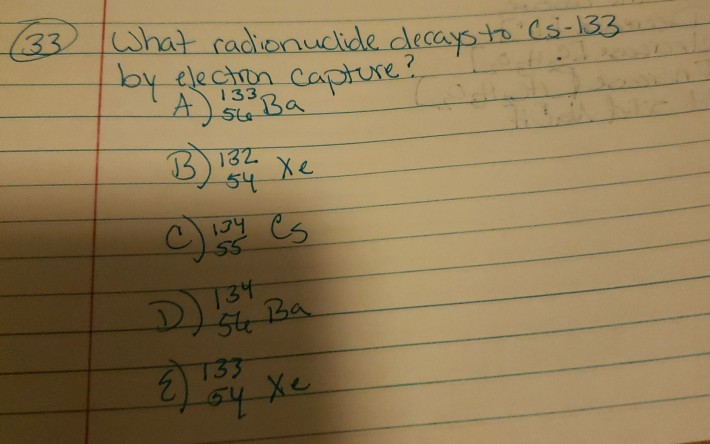 33 What radionuclide decays to Cs-133
by electron capture?
A) 133 56 Ba
B) 132 54 Xe
C) 134 55 Cs
D) 134 56 Ba
E) 133 54 Xe